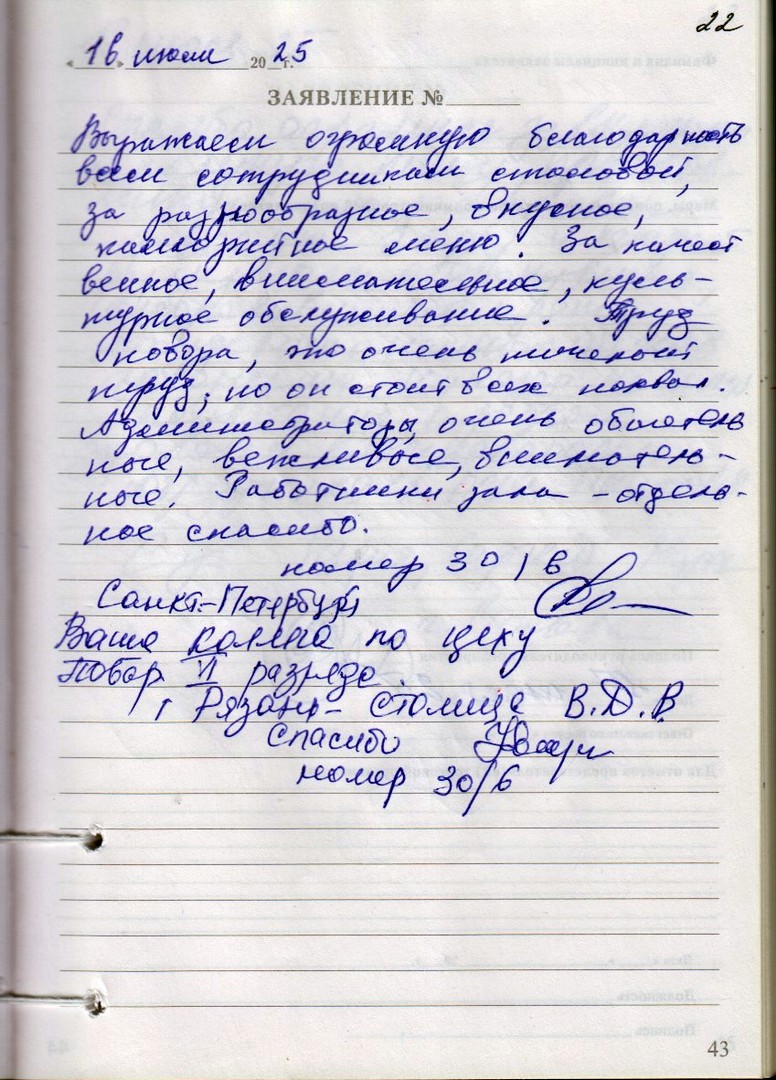 22
« 16 » июля 20 25 г.
ЗАЯВЛЕНИЕ №
Выражаем огромную благодарность
всем сотрудникам столовой,
за разнообразное, вкусное,
меню. За качест
венное, внимательное, куль-
турное обслуживание. Труд
повора, это очень
труд, но он стоит всех похвал.
Администраторы, очень обоятель
ные, вежливые, вниматель-
ные. Работники зала - отдель-
ное спасибо.
номер 30/6
Санкт-Петербург
Ваша коллега по цеху
Повар VI разряда.
г Рязань - столица В.Д.В
Спасибо
номер 30/6
43